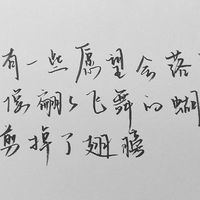 有一些愿望会落
像翩々飞舞的蝴
剪掉了翅膀